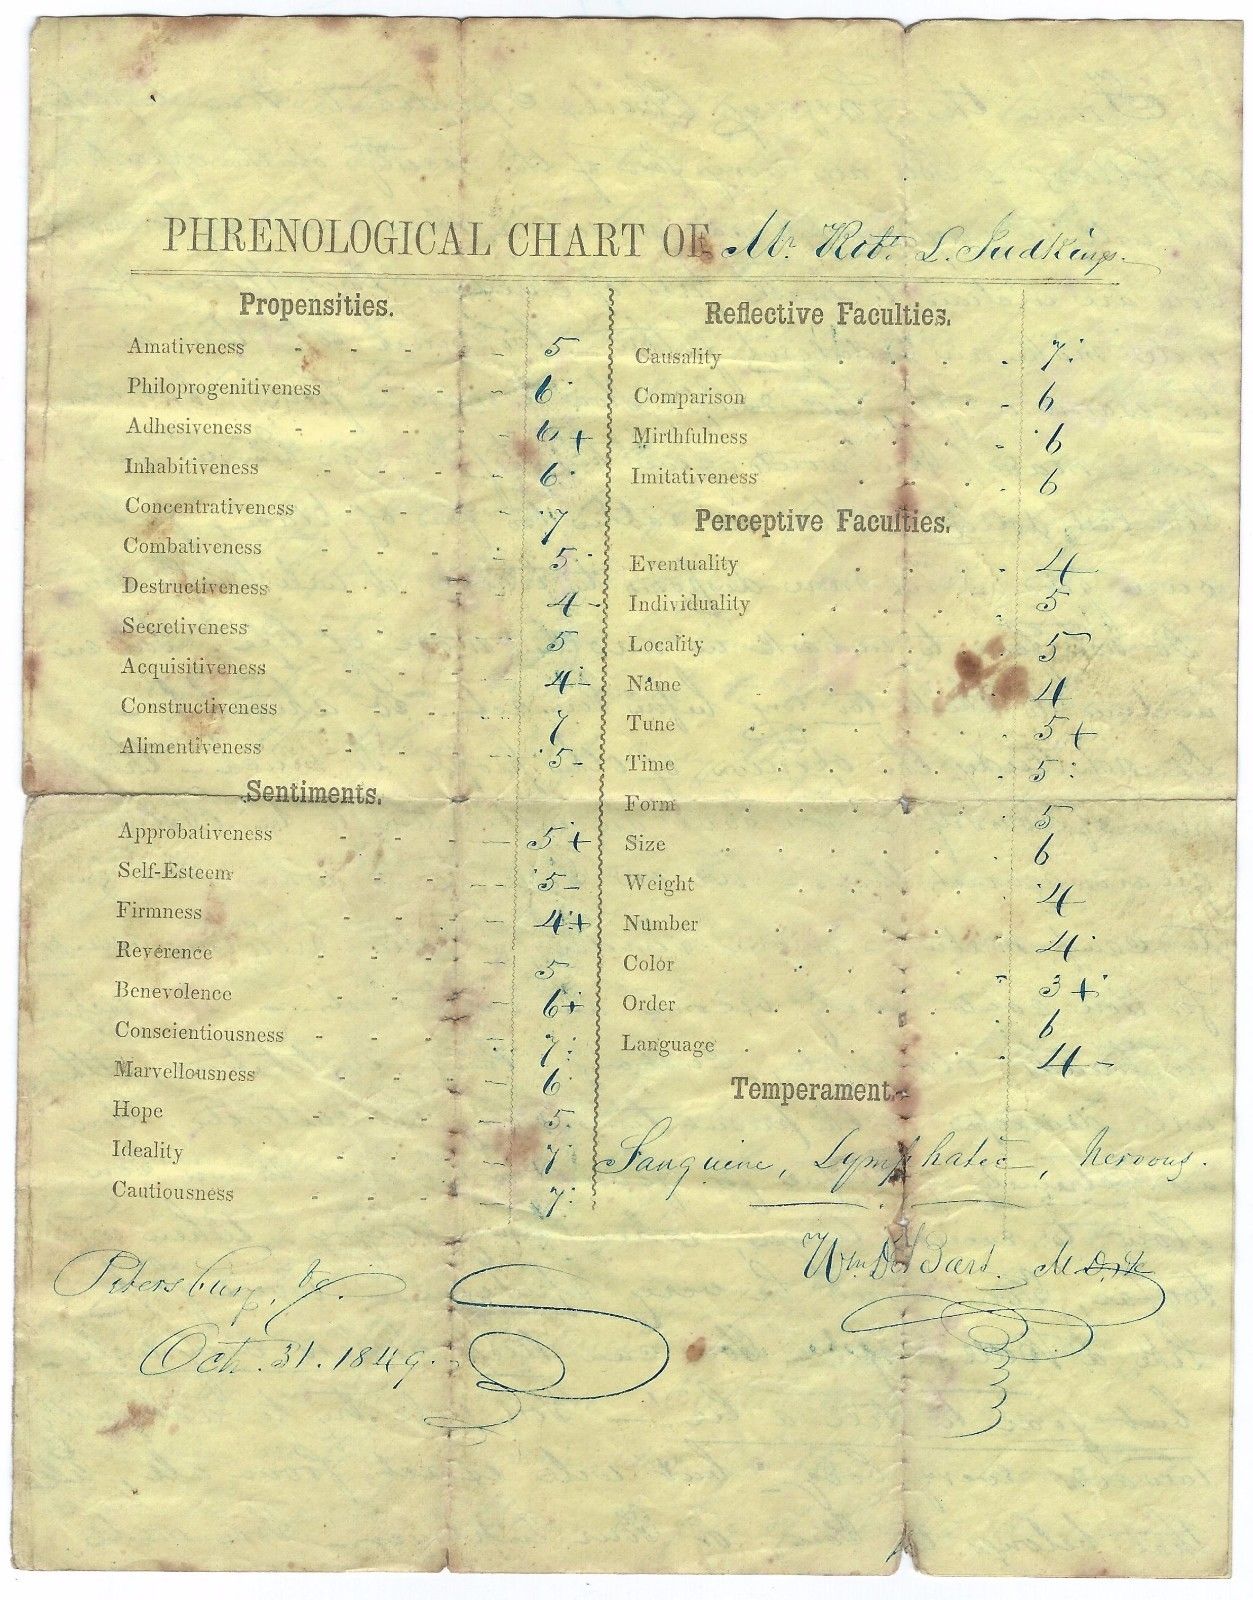 PHRENOLOGICAL CHART OF Mr. Robt. L. Judkins.
Propensities.
Amativeness 5
Philoprogenitiveness 6
Adhesiveness 6+
Inhabitiveness 6
Concentrativeness 7
Combativeness 5
Destructiveness 4-
Secretiveness 5
Acquisitiveness 4-
Constructiveness 7
Alimentiveness 5-
Sentiments.
Approbativeness 5+
Self-Esteem 5-
Firmness 4+
Reverence 5
Benevolence 6+
Conscientiousness 7
Marvellousness 6
Hope 5
Ideality 7
Cautiousness 7
Reflective Faculties.
Causality 7
Comparison 6
Mirthfulness 6
Imitativeness 6
Perceptive Faculties.
Eventuality 4
Individuality 5
Locality 5
Name 4
Tune 5+
Time 5
Form 5
Size 6
Weight 4
Number 4
Color 3+
Order 6
Language 4-
Temperament.
Sanguine, Lymphatic, Nervous.
Petersburg, Va.
Oct. 31. 1849.